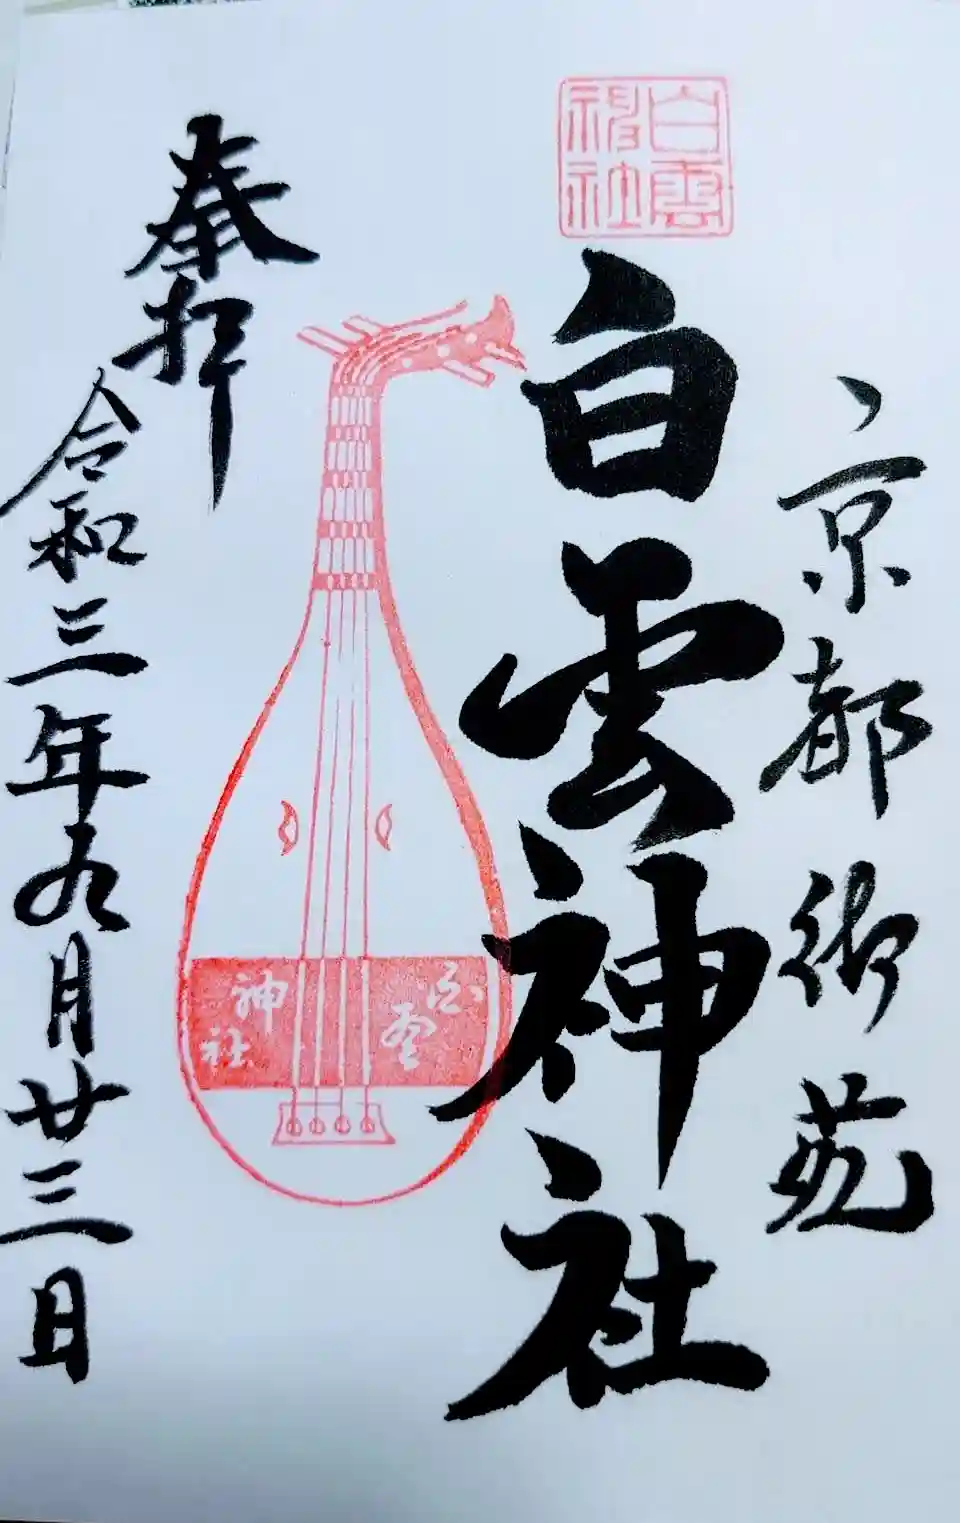 京都御苑
白雲
神社
白雲神社
白雲
神社
奉拝
令和三年九月廿三日